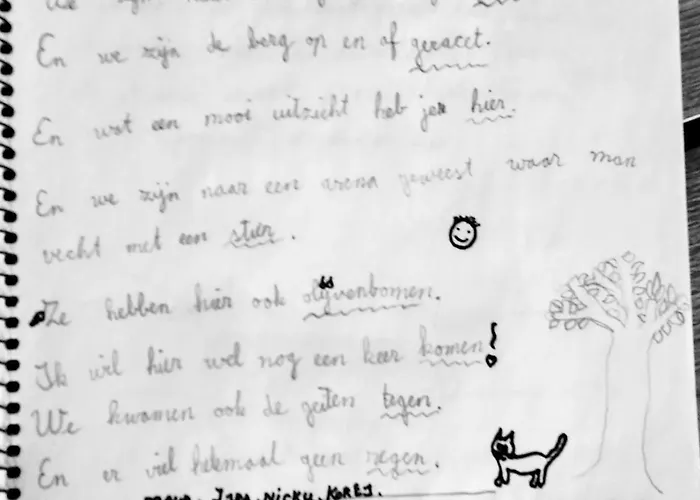 En we zijn de berg op en af geracet.
En wat een mooi uitzicht heb je hier.
En we zijn naar een arena geweest waar man
vecht met een stier.
Ze hebben hier ook olijvenbomen.
Ik wil hier wel nog een keer komen!
We kwamen ook de geiten tegen.
En er viel helemaal geen regen.
NICKY.